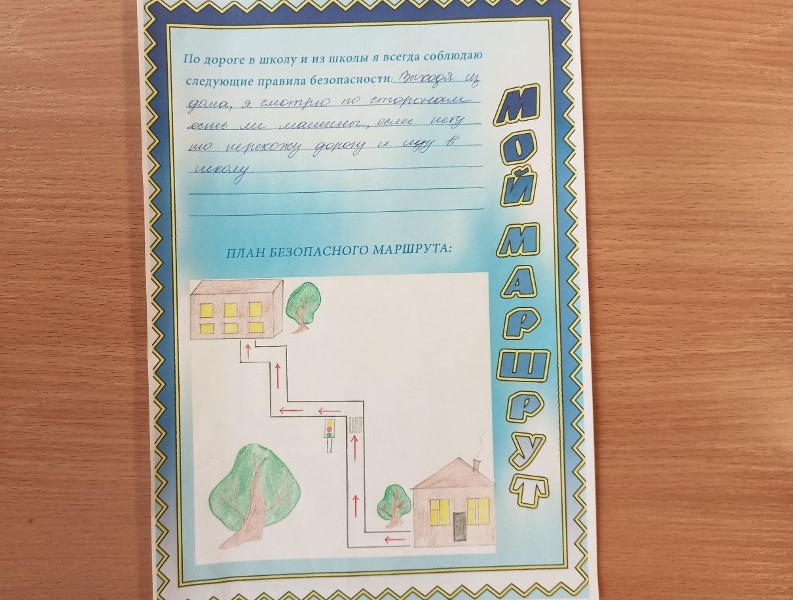 По дороге в школу и из школы я всегда соблюдаю
следующие правила безопасности. Выходя из
дома, я смотрю по сторонам
есть ли машины, если нету
то перехожу дорогу и иду в
школу.
ПЛАН БЕЗОПАСНОГО МАРШРУТА:
МОЙ МАРШРУТ